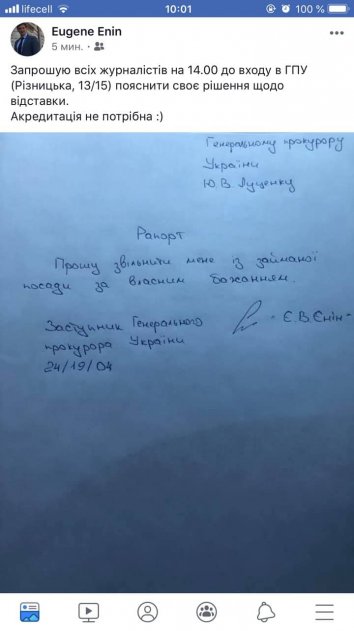 lifecell
10:01
100 %
Eugene Enin
5 мин. ·
Запрошую всіх журналістів на 14.00 до входу в ГПУ
(Різницька, 13/15) пояснити своє рішення щодо
відставки.
Акредитація не потрібна :)
Генеральному прокурору
України
Ю.В. Луценку
Рапорт
Прошу звільнити мене із займаної
посади за власним бажанням.
Заступник Генерального
прокурора України
- Є.В.Єнін -
24/19/04